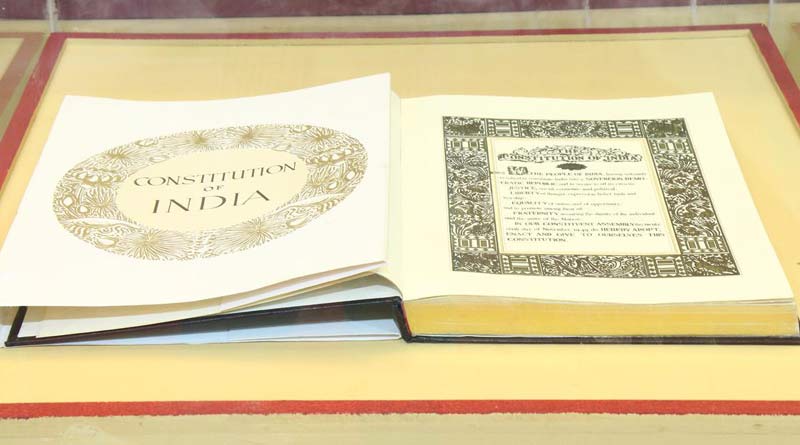 CONSTITUTION
OF
INDIA
THE
CONSTITUTION OF INDIA
WE, THE PEOPLE OF INDIA, having solemnly
resolved to constitute India into a SOVEREIGN DEMO-
CRATIC REPUBLIC and to secure to all its citizens:
JUSTICE, social, economic and political;
LIBERTY of thought, expression, belief, faith and
worship;
EQUALITY of status and of opportunity;
and to promote among them all
FRATERNITY assuring the dignity of the individual
and the unity of the Nation;
IN OUR CONSTITUENT ASSEMBLY this twenty-
sixth day of November, 1949, do HEREBY ADOPT,
ENACT AND GIVE TO OURSELVES THIS
CONSTITUTION.